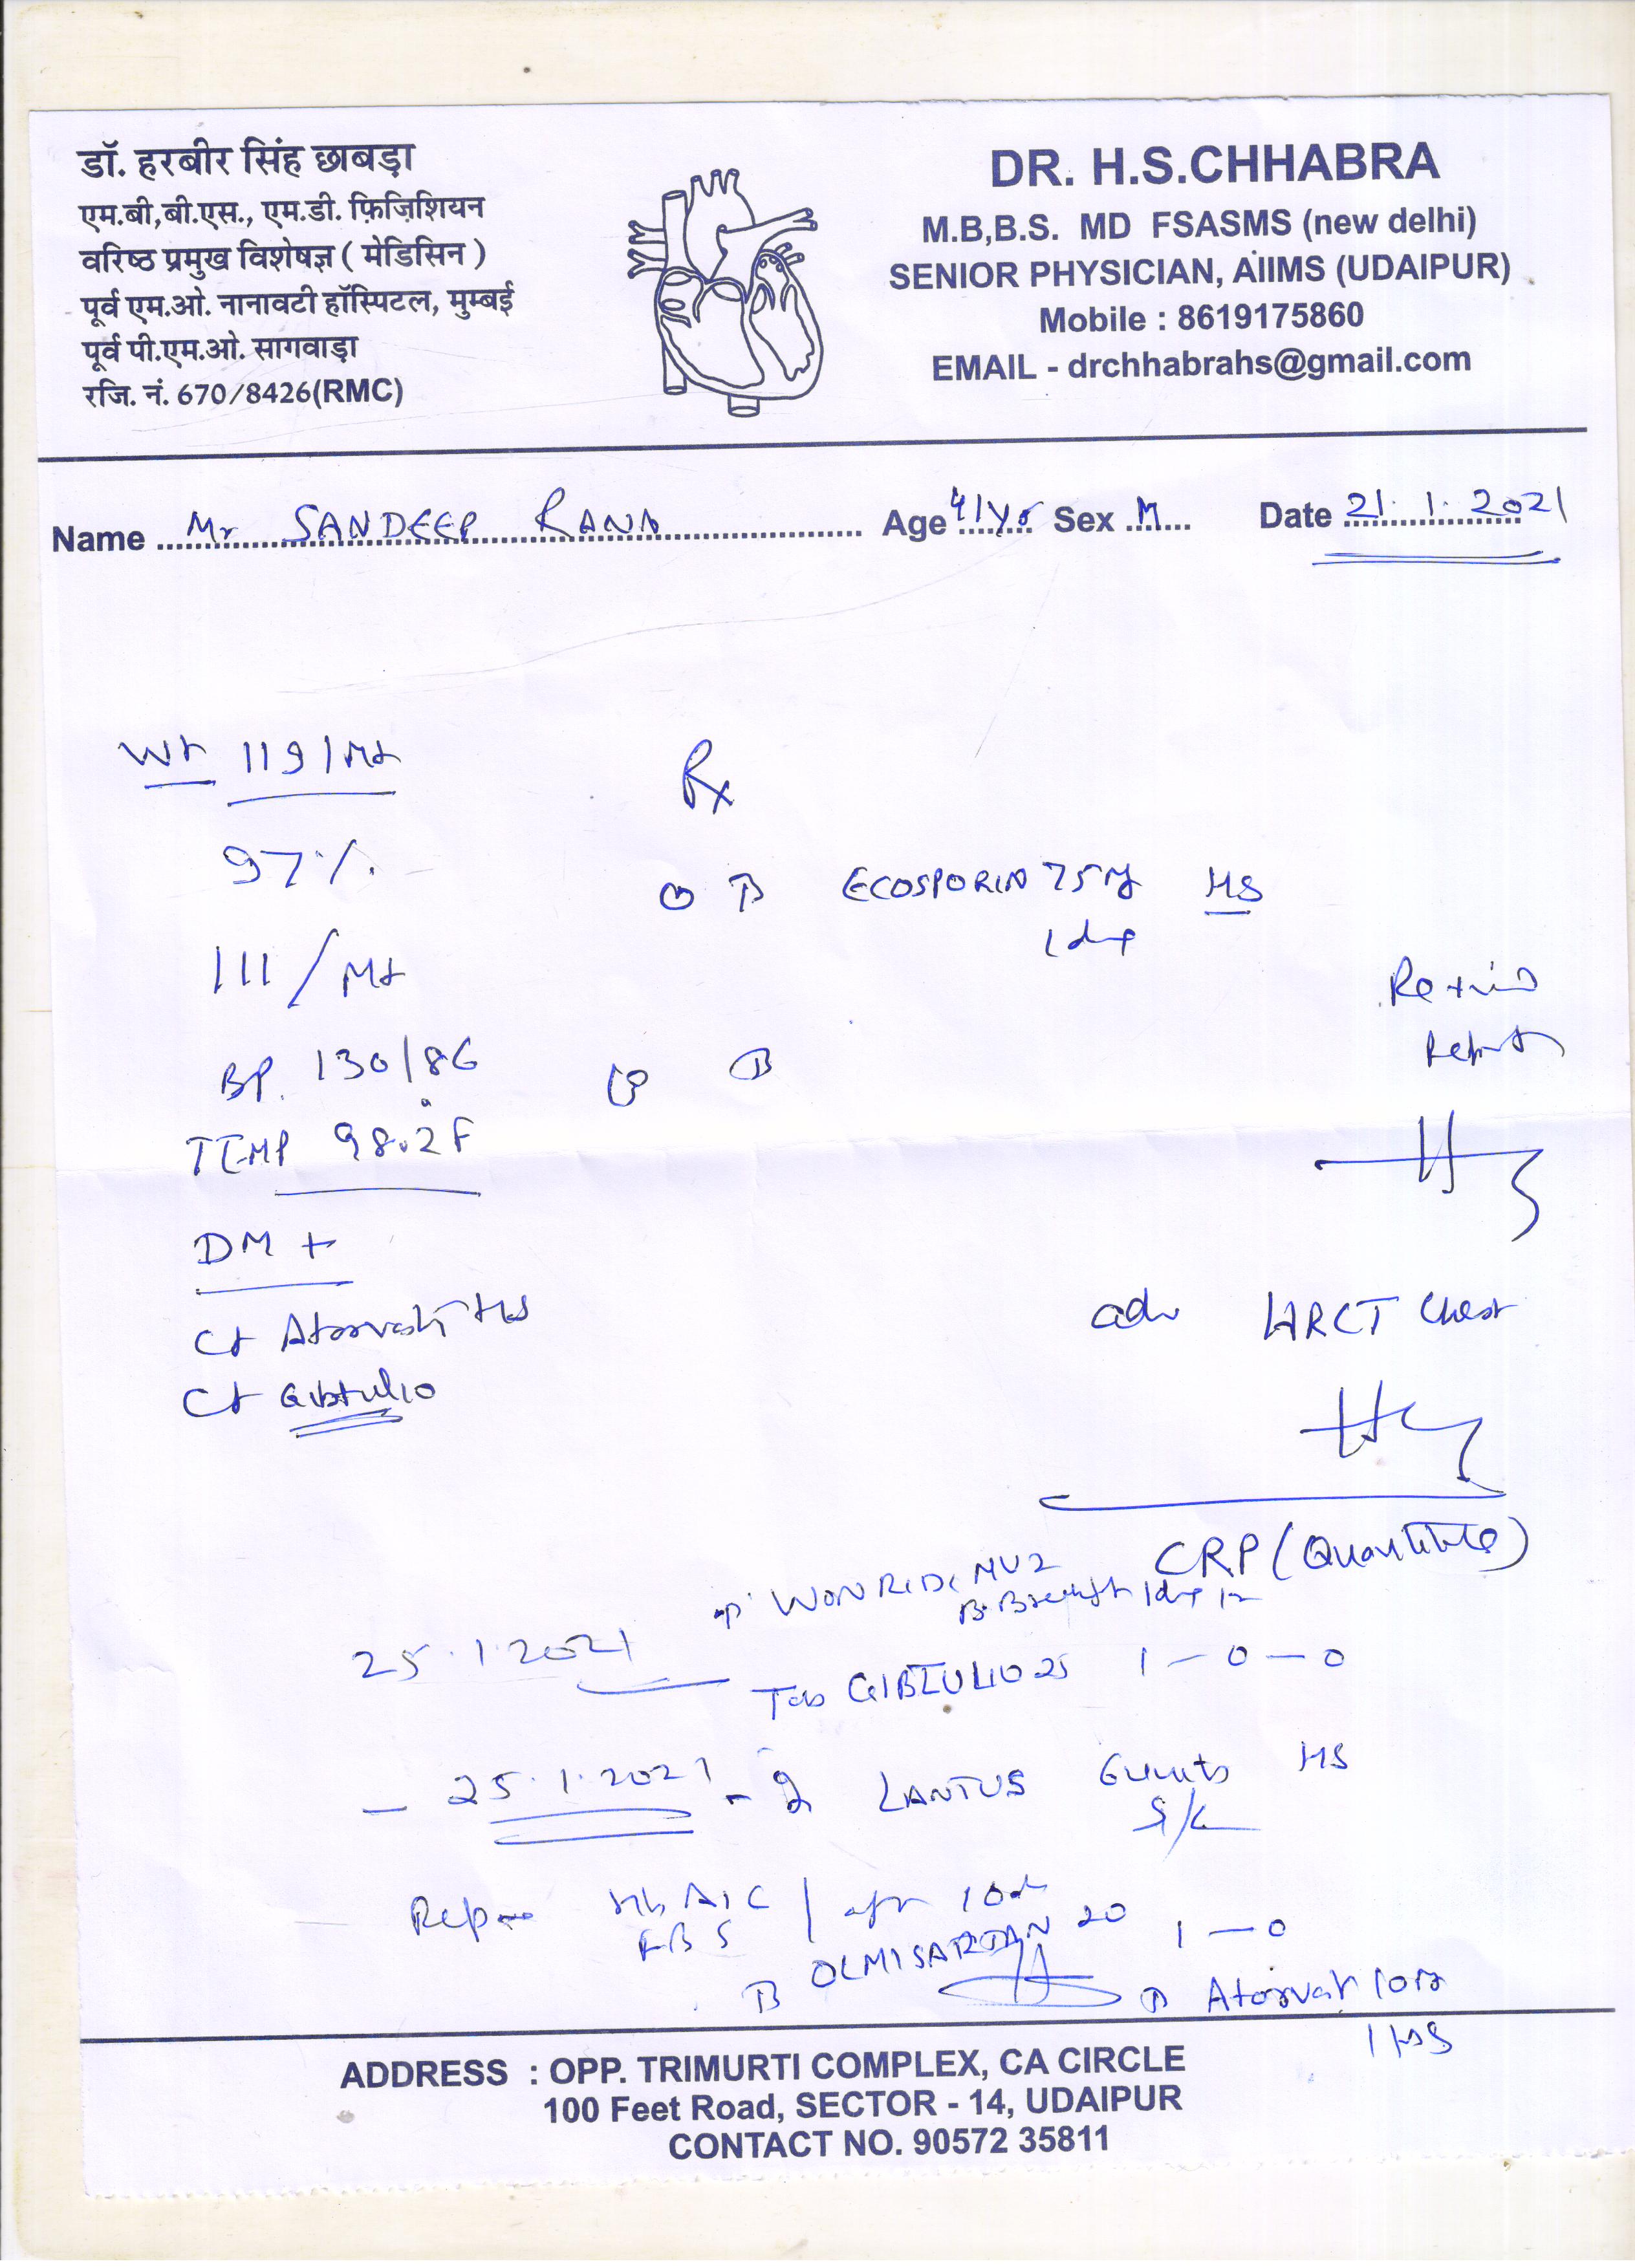 डॉ. हरबीर सिंह छाबड़ा
एम.बी,बी.एस., एम.डी. फ़िज़िशियन
वरिष्ठ प्रमुख विशेषज्ञ ( मेडिसिन )
पूर्व एम.ओ. नानावटी हॉस्पिटल, मुम्बई
पूर्व पी.एम.ओ. सागवाड़ा
रजि. नं. 670/8426(RMC)
DR. H.S.CHHABRA
M.B,B.S. MD FSASMS (new delhi)
SENIOR PHYSICIAN, AIIMS (UDAIPUR)
Mobile : 8619175860
EMAIL - drchhabrahs@gmail.com
Name Mr SANDEEP RANA Age 41 Yrs Sex M Date 21.1.2021
Wt 119/Mt
97%
111/Mt
BP. 130/86
TEMP 98.2°F
DM +
Ct Atorvastatin HS
Ct Gibtulio
Rx
ECOSPORIN 75mg HS
adv HRCT Chest
CRP (Quantitative)
WONRIDE MV2
25.1.2021
Tab GIBTULIO 25 1-0-0
25.1.2021 - LANTUS 6 units HS
S/C
HbA1C
FBS
OLMISARTAN 20 1-0
Atorvat 10mg
1 HS
ADDRESS : OPP. TRIMURTI COMPLEX, CA CIRCLE
100 Feet Road, SECTOR - 14, UDAIPUR
CONTACT NO. 90572 35811